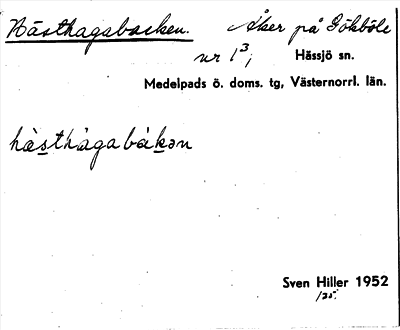 Hästhagabacken. Åker på Gökböle
nr 1³, Hässjö sn.
Medelpads ö. doms. tg, Västernorrl. län.
hästhàgabákən
Sven Hiller 1952